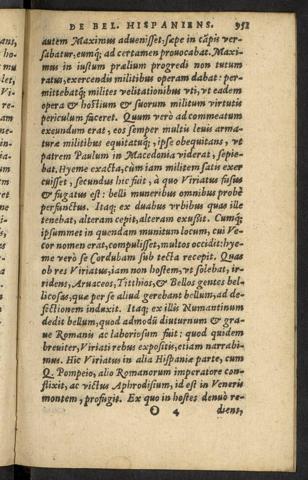 DE BEL. HISPANIENS. 951
autem Maximus aduenisset: sæpe in cāpis ver-
sabatur, eumq́; ad certamen prouocabat. Maxi-
mus in iustum prælium progredi non tutum
ratus, exercendis militibus operam dabat: per-
mittebatq́; milites velitationibus vti, vt eadem
opera & hostium & suorum militum virtutis
periculum faceret. Quum verò ad commeatum
exeundum erat, eos semper multis leuis arma-
turæ militibus equitatuq́;, ipse obequitans, vt
patrem Paulum in Macedonia viderat, sepie-
bat. Hyeme exacta, cùm iam militem satis exer-
cuisset, secundus hic fuit, à quo Viriatus fusus
& fugatus est: belli muneribus omnibus probè
perfunctus. Itaq; ex duabus vrbibus quas ille
tenebat, alteram cepit, alteram exussit. Cumq́;
ipsummet in quendam munitum locum, cui Ve-
cor nomen erat, compulisset, multos occidit: hye-
me verò se Cordubam sub tecta recepit. Quas
ob res Viriatus, iam non hostem, vt solebat, ir-
ridens, Aruaceos, Titthios, & Bellos gentes bel-
licosas, quæ per se aliud gerebant bellum, ad de-
fectionem induxit. Itaq; ex illis Numantinum
dedit bellum, quod admodũ diuturnum & gra-
ue Romanis ac laboriosum fuit: quod quidem
breuiter, Viriati rebus expositis, etiam narrabi-
mus. Hic Viriatus in alia Hispaniæ parte, cum
Q. Pompeio, alio Romanorum imperatore con-
flixit, ac victus Aphrodisium, id est in Veneris
montem, profugit. Ex quo in hostes denuò re-
O 4 dient,